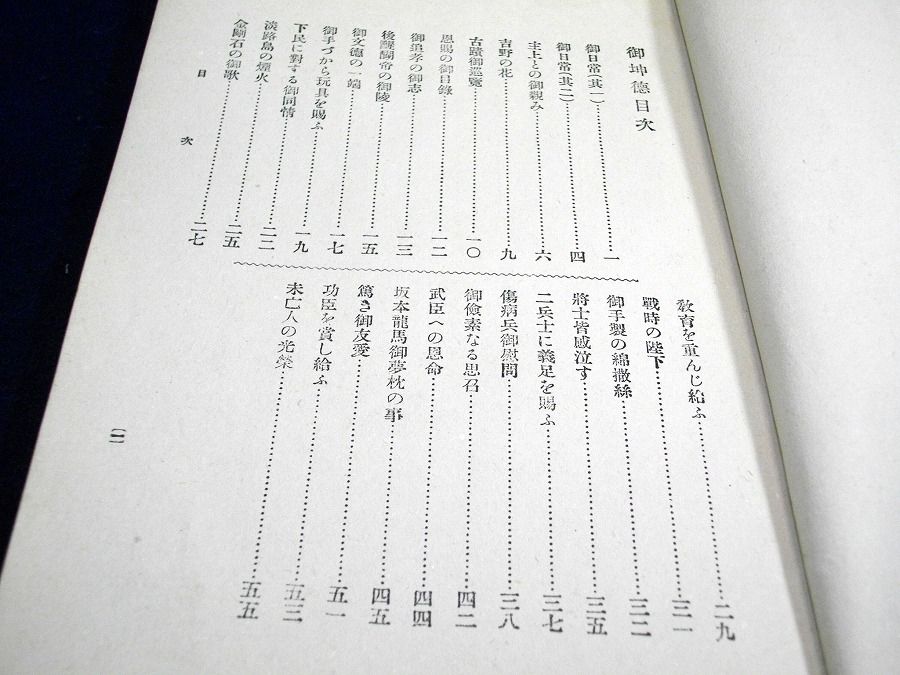 御坤德目次
御日常(其一)……一
御日常(其二)……四
主上との御親み……六
吉野の花……九
古蹟御巡覽……一〇
恩賜の御目錄……一二
御追孝の御志……一三
後醍醐帝の御陵……一五
御文德の一端……一七
御手づから玩具を賜ふ……一九
下民に對する御同情……二二
淡路島の煙火……二五
金剛石の御歌……二七
教育を重んじ給ふ……二九
戰時の陛下……三一
御手製の綿撒絲……三二
將士皆感泣す……三五
二兵士に義足を賜ふ……三七
傷病兵御慰問……三八
御儉素なる思召……四二
武臣への恩命……四四
坂本龍馬御夢枕の事……四五
篤き御友愛……五一
功臣を賞し給ふ……五三
未亡人の光榮……五五
目次
(一)